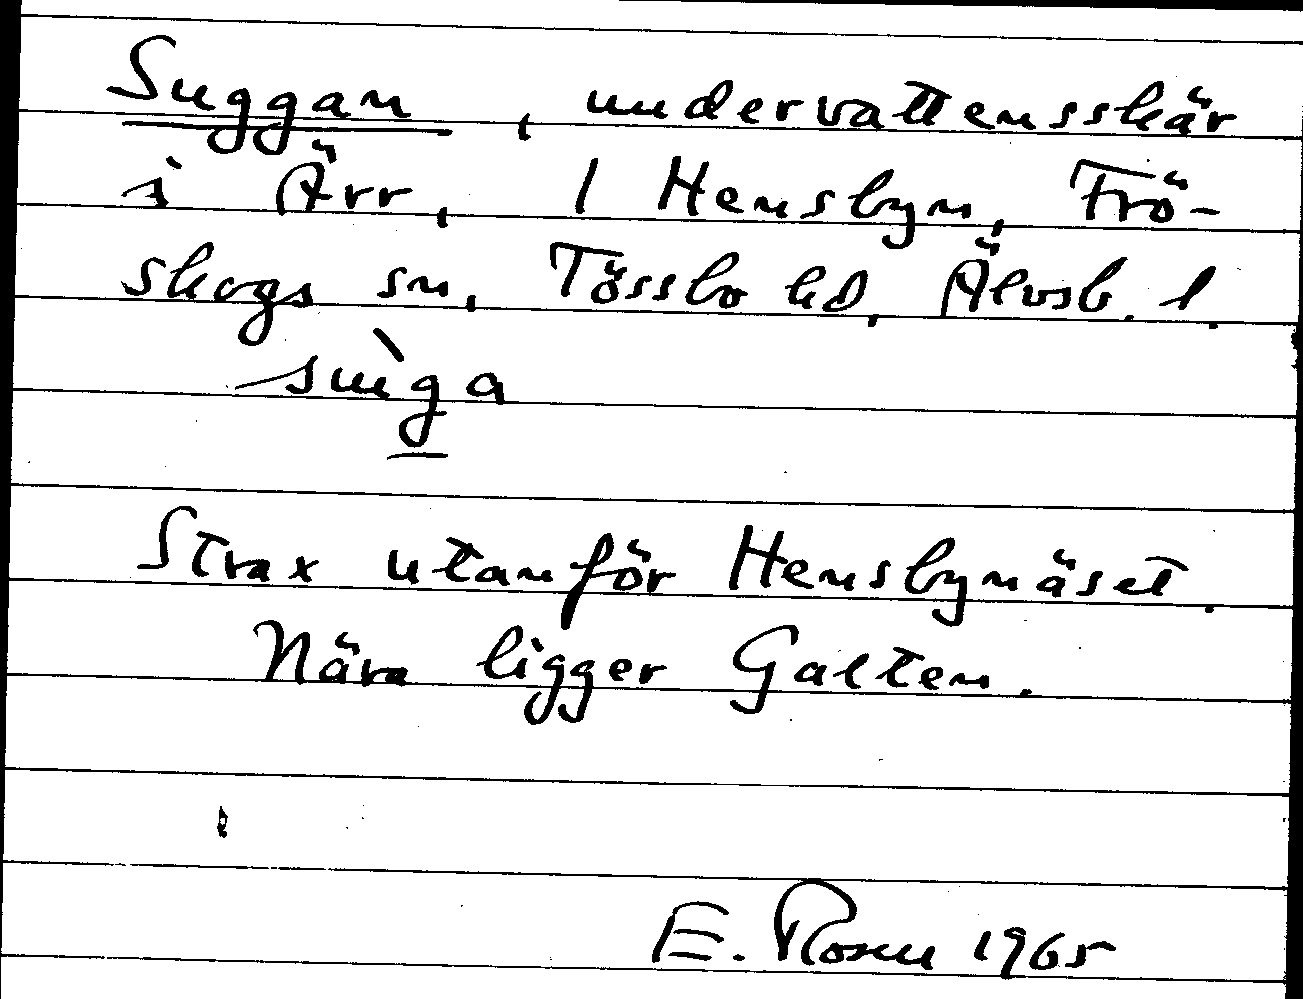 Suggan, undervattensskär
i Ärr, 1 Hensbyn, Frö-
skogs sn, Tössbo hd, Älvsb. l.
sùg̲a
Strax utanför Hensbynäset.
Nära ligger Galten.
E. Rosén 1965